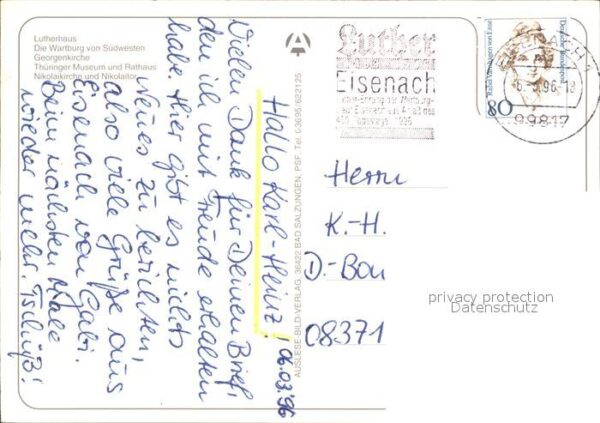 Lutherhaus
Die Wartburg von Südwesten
Georgenkirche
Thüringer Museum und Rathaus
Nikolaikirche und Nikolaitor
Hallo Karl-Heinz! 06.03.96
Vielen Dank für Deinen Brief,
den ich mit Freude erhalten
habe. Hier gibt es nichts
Neues zu berichten,
also viele Grüße aus
Eisenach von Gabi.
Beim nächsten Male
wieder mehr. Tschüß!
AUSLESE-BILD-VERLAG, 36422 BAD SALZUNGEN, PSF, Tel. 03695/622125
Luther
Eisenach
1996
EISENACH 1
-6.-3.96-18
99817
Deutsche Bundespost
80
Herrn
K.-H.
D.-Bon
08371
privacy protection
Datenschutz